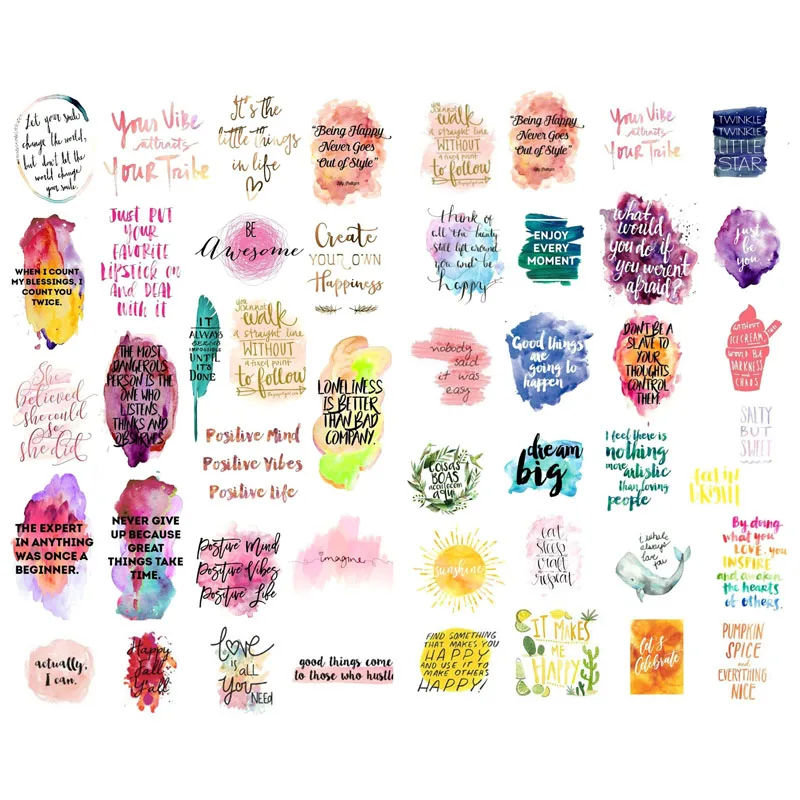 Let your smile
change the world,
but don't let the
world change
your smile.
Your Vibe
attracts
Your Tribe
It's the
little things
in life
"Being Happy
Never Goes
Out of Style"
you cannot
walk
a straight line
WITHOUT
a fixed point
to follow
"Being Happy
Never Goes
Out of Style"
Your Vibe
attracts
Your Tribe
TWINKLE
TWINKLE
LITTLE
STAR
WHEN I COUNT
MY BLESSINGS, I
COUNT YOU
TWICE.
JUST PUT
YOUR
FAVORITE
LIPSTICK ON
AND DEAL
WITH IT
BE
Awesome
Create
YOUR OWN
Happiness
think of
all the beauty
still left around
you and be
happy
ENJOY
EVERY
MOMENT
what
would
you do if
you weren't
afraid?
just
be
you
She
believed
she could
so
she did
THE MOST
DANGEROUS
PERSON IS THE
ONE WHO
LISTENS,
THINKS AND
OBSERVES.
IT
ALWAYS
SEEMS
IMPOSSIBLE
UNTIL
IT'S
DONE
you cannot
walk
a straight line
WITHOUT
a fixed point
to follow
LONELINESS
IS BETTER
THAN BAD
COMPANY.
Positive Mind
Positive Vibes
Positive Life
nobody
said
it was
easy
Good things
are
going to
happen
DON'T BE A
SLAVE TO
YOUR
THOUGHTS,
CONTROL
THEM.
WITHOUT
ICE CREAM,
WOULD BE
DARKNESS
AND
CHAOS
SALTY
BUT
SWEET
COISAS
BOAS
acontecem
aqui
dream
big
I feel there is
nothing
more artistic
than loving
people
THE EXPERT
IN ANYTHING
WAS ONCE A
BEGINNER.
NEVER GIVE
UP BECAUSE
GREAT
THINGS TAKE
TIME.
Positive Mind
Positive Vibes
Positive Life
imagine
sunshine
eat
sleep
craft
repeat
i whale
always
love you
By doing
what you
LOVE, you
INSPIRE
and awaken
the hearts
of others.
actually,
I can.
Happy
fall
Y'all
LOVE
is ALL
You
NEED
good things come
to those who hustle
FIND SOMETHING
THAT MAKES YOU
HAPPY
AND USE IT TO
MAKE OTHERS
HAPPY!
IT MAKES
ME
HAPPY
Let's
Celebrate
PUMPKIN
SPICE
and
EVERYTHING
NICE